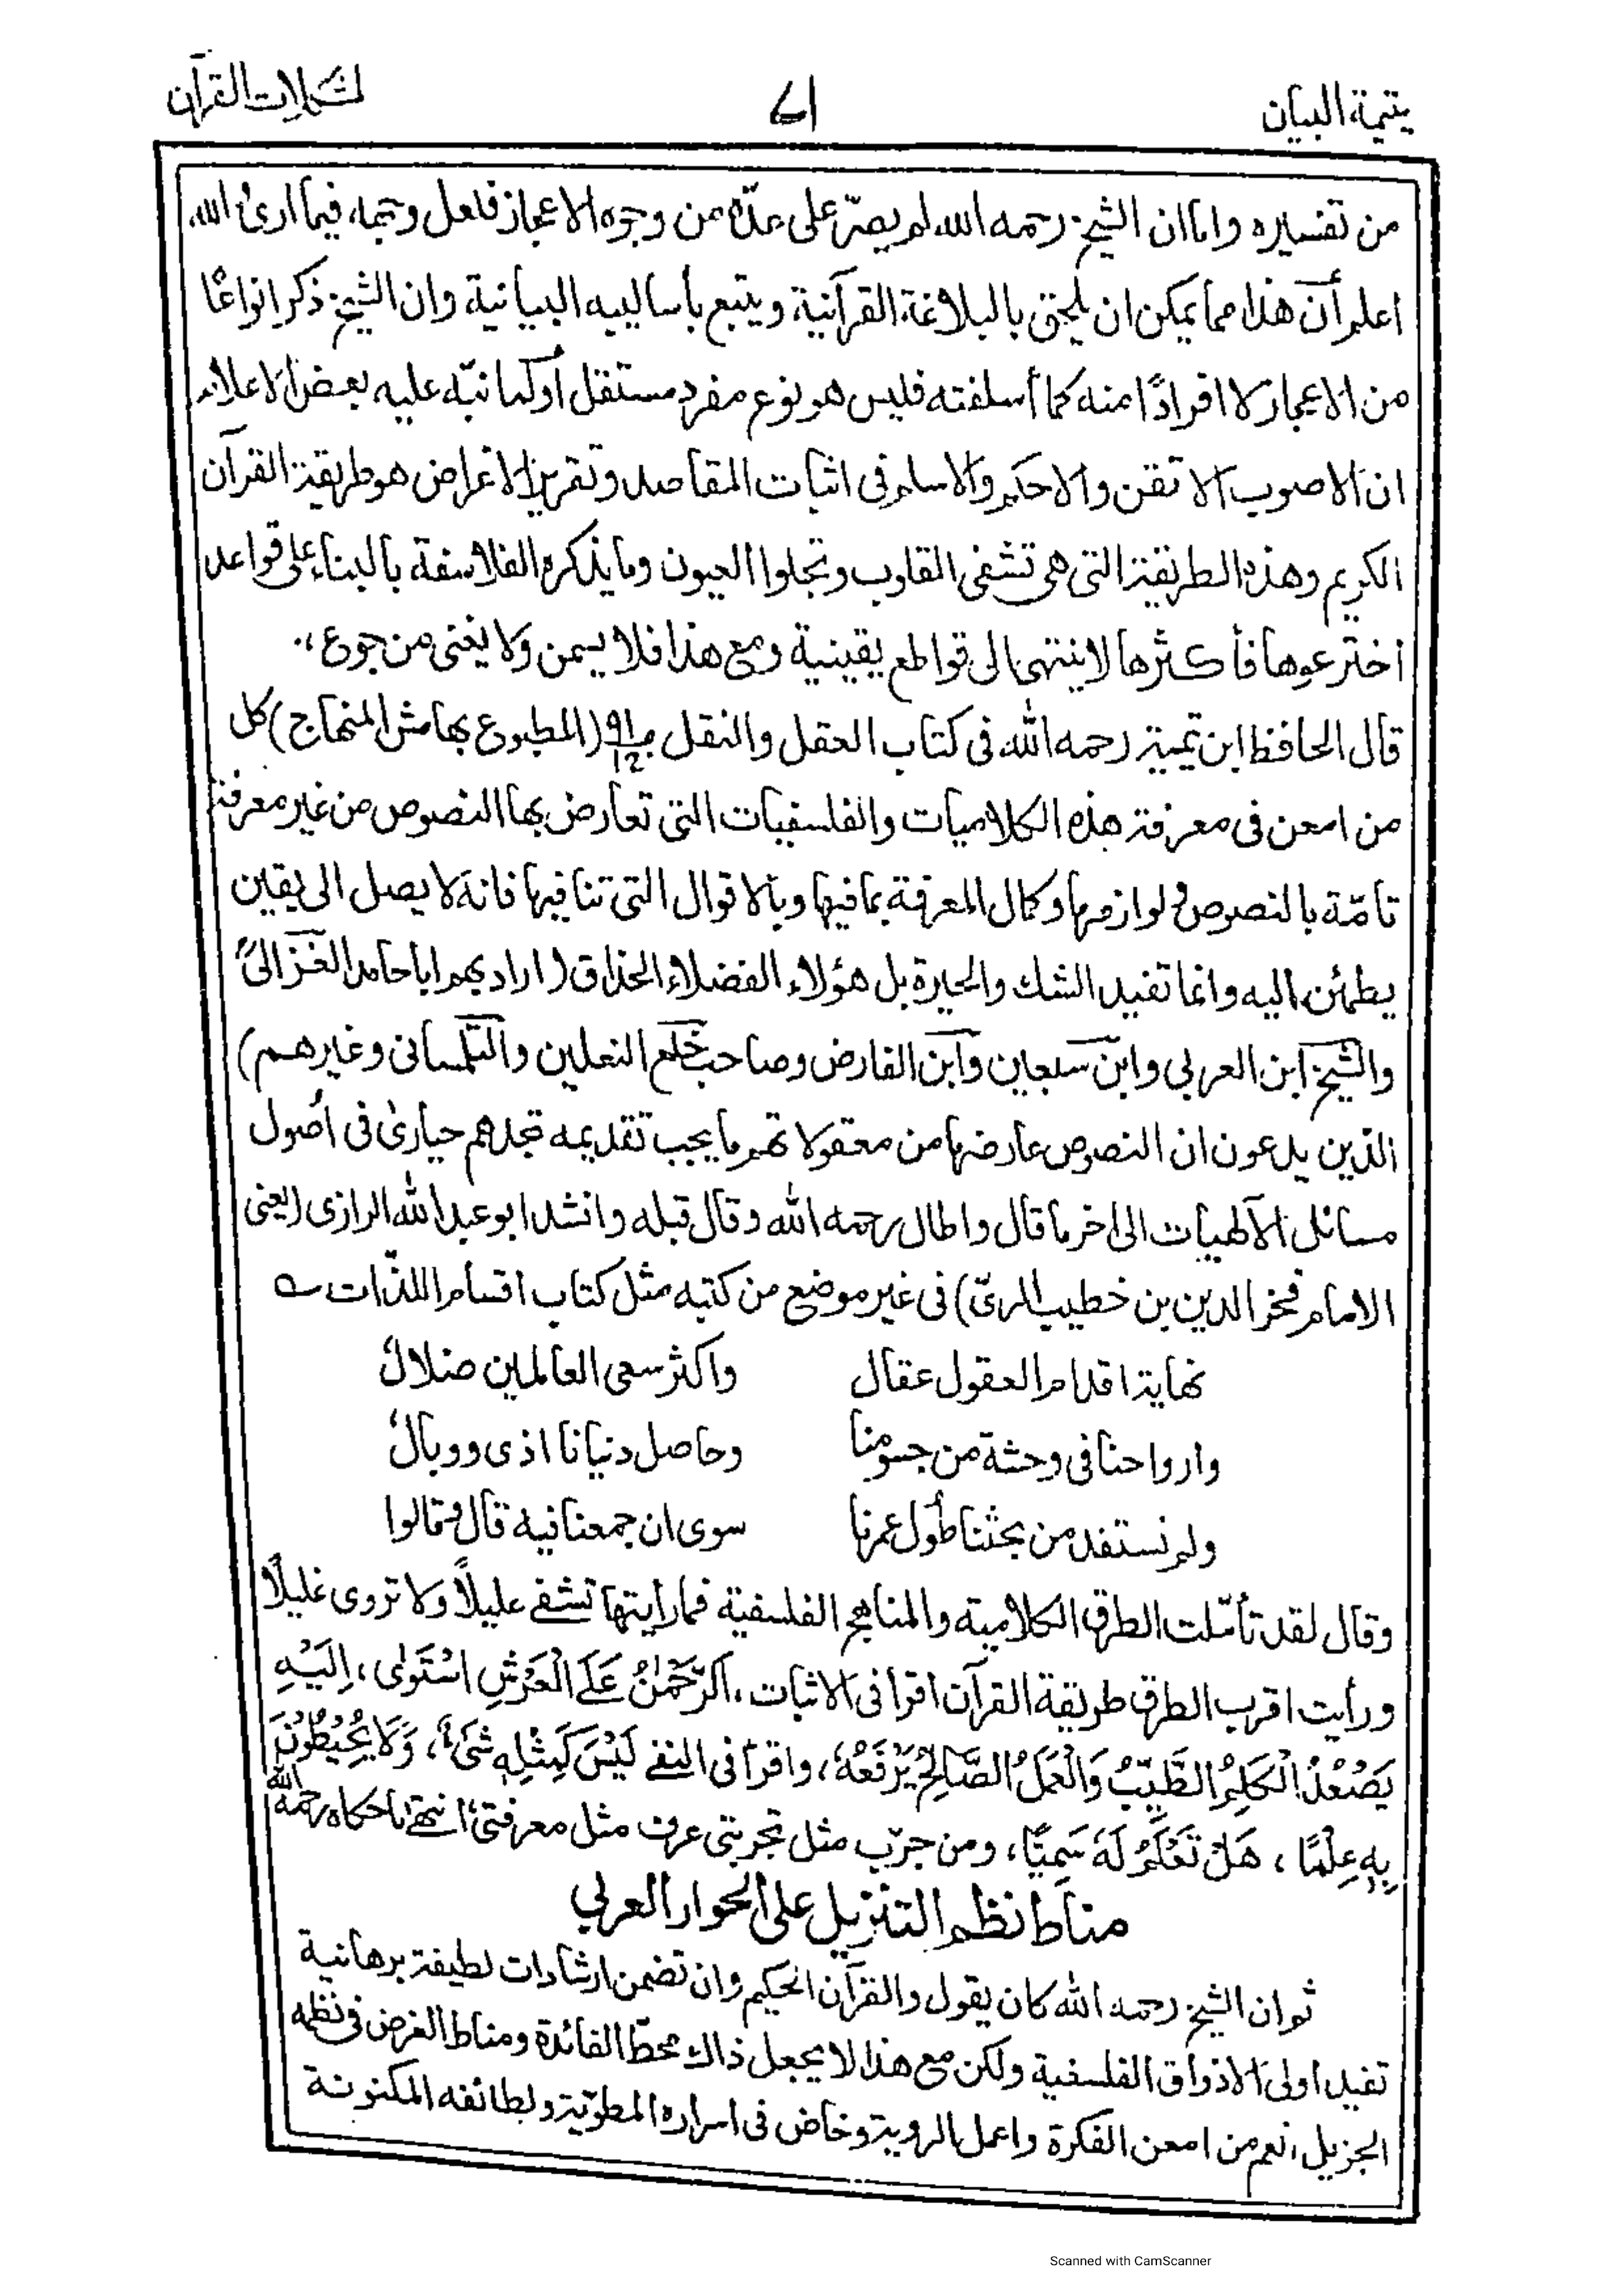 يتيمة البيان
٧١
لمشكلات القرآن
من تفسيره واما ان الشيخ رحمه الله لم يصرّ على عدّه من وجوه الاعجاز فلعل وجهه فيما ارى والله
اعلم أن هذا مما يمكن ان يلحق بالبلاغة القرآنية ويتبع بأساليبه البيانية وان الشيخ ذكر انواعًا
من الاعجاز لا افرادًا منه كما أسلفته فليس هو نوع مفرد مستقل أو كما نبّه عليه بعض الاعلاء
ان الاصوب الاتقن والاحكم والاسلم فى اثبات المقاصد وتقرير الاغراض هو طريقة القرآن
الكريم وهذه الطريقة التى هى تشفى القلوب وتجلوا العيون وما يذكره الفلاسفة بالبناء على قواعد
اخترعوها فأكثرها لا ينتهى الى قواطع يقينية ومع هذا فلا يسمن ولا يغنى من جوع،
قال الحافظ ابن تيمية رحمه الله فى كتاب العقل والنقل (المطبوع بهامش المنهاج) كل
من امعن فى معرفة هذه الكلاميات والفلسفيات التى تعارض بها النصوص من غير معرفة
تامّة بالنصوص ولوازمها وكمال المعرفة بما فيها وبالاقوال التى تنافيها فانه لا يصل الى يقين
يطمئن اليه وانما تفيد الشك والحيرة بل هؤلاء الفضلاء الحذاق (اراد بهم ابا حامد الغزالىّ
والشيخ ابن العربي وابن سبعين وابن الفارض وصاحب خلع النعلين والتلمسانى وغيرهم)
الذين يدعون ان النصوص عارضها من معقولاتهم ما يجب تقديمه تجدهم حيارى فى أصول
مسائل الآلهيات الى اخر ما قال واطال رحمه الله وقال قبله وانشد ابو عبد الله الرازى (يعنى
الامام فخر الدين بن خطيب الرىّ) فى غير موضع من كتبه مثل كتاب اقسام اللذّات ؎
نهاية اقدام العقول عقال واكثر سعى العالمين ضلال
وارواحنا فى وحشة من جسومنا وحاصل دنيانا اذى ووبال
ولم نستفد من بحثنا طول عمرنا سوى ان جمعنا فيه قال وقالوا
وقال لقد تأمّلت الطرق الكلامية والمناهج الفلسفية فما رأيتها تشفے عليلًا ولا تروى غليلًا
ورأيت اقرب الطرق طريقة القرآن اقرأ فى الاثبات، اَلرَّحْمٰنُ عَلَى الْعَرْشِ اسْتَوٰى، اِلَيْهِ
يَصْعَدُ الْكَلِمُ الطَّيِّبُ وَالْعَمَلُ الصَّالِحُ يَرْفَعُهُ، واقرأ فى النفے لَيْسَ كَمِثْلِهٖ شَىْءٌ، وَلَا يُحِيْطُوْنَ
بِهٖ عِلْمًا، هَلْ تَعْلَمُ لَهٗ سَمِيًّا، ومن جرّب مثل تجربتى عرف مثل معرفتى، انتهى ما حكاه رحمه الله
مناط نظم التنزيل على الحوار العربي
ثم ان الشيخ رحمه الله كان يقول والقرآن الحكيم وان تضمن ارشادات لطيفة برهانية
تفيد اولى الاذواق الفلسفية ولكن مع هذا لا يجعل ذاك محطّ الفائدة ومناط الغرض فى نظمه
الجزيل، نعم من امعن الفكرة واعمل الروية وخاض فى اسراره المطويّة ولطائفه المكنونة
Scanned with CamScanner